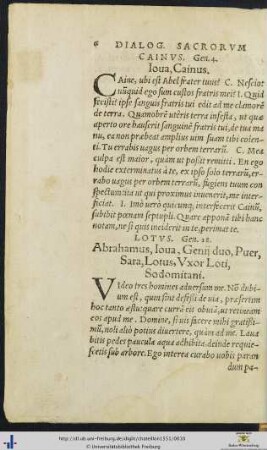 6 DIALOG. SACRORVM
CAINVS. Gen. 4.
Ioua, Cainus.
CAine, ubi est Abel frater tuus? C. Nescio:
nũquid ego sum custos fratris mei? I. Quid
fecisti? ipse sanguis fratris tui edit ad me clamorẽ
de terra. Quamobrẽ uteris terra infesta, ut quæ
aperto ore hauserit sanguinẽ fratris tui, de tua ma
nu, ea non præbeat amplius uim suam tibi colen-
ti. Tu errabis uagus per orbem terrarũ. C. Mea
culpa est maior, quàm ut possit remitti. En ego
hodie exterminatus à te, ex ipso solo terrarũ, er-
rabo uagus per orbem terrarũ, fugiens tuum con
spectum: ita ut qui proximus inuenerit, me inter-
ficiat. I. Imò uerò quicunq; interfecerit Cainũ,
subibit pœnam septuplì. Quare apponã tibi hanc
notam, ne si quis inciderit in te, perimat te.
LOTVS. Gen. 18.
Abrahamus, Ioua, Genij duo, Puer,
Sara, Lotus, Vxor Loti,
Sodomitani.
VIdeo tres homines aduersum me. Nõ dubi-
um est, quin sint defessi de uia, præsertim
hoc tanto æstu: quare currã eis obuiã, ut uertant
eos apud me. Domine, si uis facere mihi gratissi-
mũ, noli aliò potius diuertere, quàm ad me. Laua
bitis pedes paucula aqua adhibita, deinde requie-
scetis sub arbore. Ego interea curabo uobis paran
dum pa-
http://dl.ub.uni-freiburg.de/diglit/chateillon1551/0010
© Universitätsbibliothek Freiburg